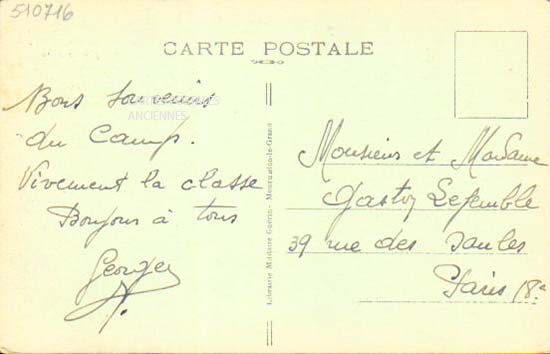 510716
CARTE POSTALE
Bons souvenirs
du Camp.
Vivement la classe
Bonjour à tous
Georges
CARTES POSTALES
ANCIENNES
Librairie Militaire Guérin - Mourmelon-le-Grand
Monsieur et Madame
Gaston
39 rue des Saules
Paris 18e